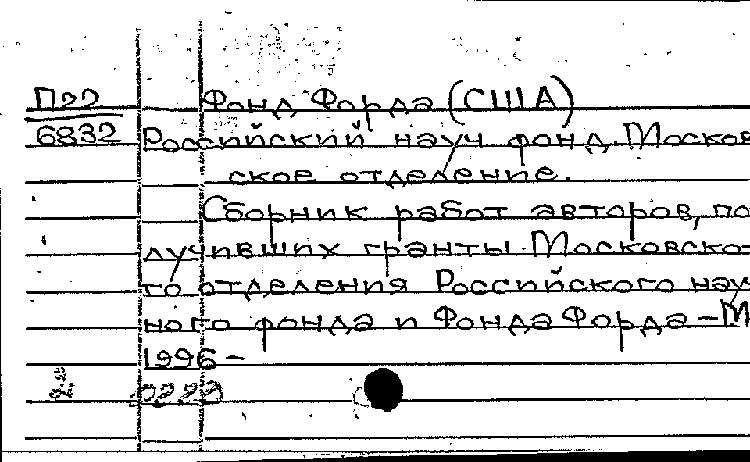 П22 Фонд Форда (США)
6832 Российский науч фонд. Москов
ское отделение.
Сборник работ авторов, по
лучивших гранты Московско-
го отделения Российского науч
ного фонда и Фонда Форда – М
1996 –